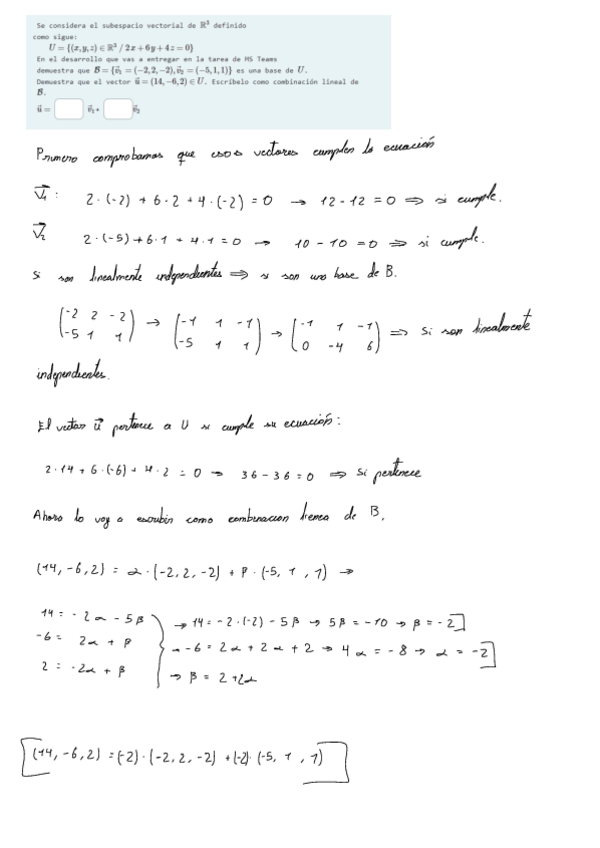 Se considera el subespacio vectorial de ℝ³ definido
como sigue:
U = {(x, y, z) ∈ ℝ³ / 2x + 6y + 4z = 0}
En el desarrollo que vas a entregar en la tarea de MS Teams
demuestra que B = {v⃗₁ = (−2, 2, −2), v⃗₂ = (−5, 1, 1)} es una base de U.
Demuestra que el vector u⃗ = (14, −6, 2) ∈ U. Escríbelo como combinación lineal de
B.
u⃗ = v⃗₁+ v⃗₂
Primero comprobamos que esos vectores cumplen la ecuación
V⃗₁: 2·(-2) + 6·2 + 4·(-2) = 0 → 12 - 12 = 0 ⇒ si cumple.
V⃗₂ 2·(-5) + 6·1 + 4·1 = 0 → 10 - 10 = 0 ⇒ si cumple.
Si son linealmente independientes ⇒ si son una base de B.
(-2 2 -2 / -5 1 1) → (-1 1 -1 / -5 1 1) → (-1 1 -1 / 0 -4 6) ⇒ Si son linealmente
independientes.
El vector u⃗ pertenece a U si cumple su ecuación:
2·14 + 6·(-6) + 4·2 = 0 → 36 - 36 = 0 ⇒ Si pertenece
Ahora lo voy a escribir como combinacion lienea de B.
(14, -6, 2) = α·(-2, 2, -2) + β·(-5, 1, 1) →
14 = -2α - 5β → 14 = -2·(-2) - 5β → 5β = -10 → β = -2]
-6 = 2α + β → -6 = 2α + 2α + 2 → 4α = -8 → α = -2]
2 = -2α + β → β = 2 + 2α
[(14, -6, 2) = (-2)·(-2, 2, -2) + (-2)·(-5, 1, 1)]